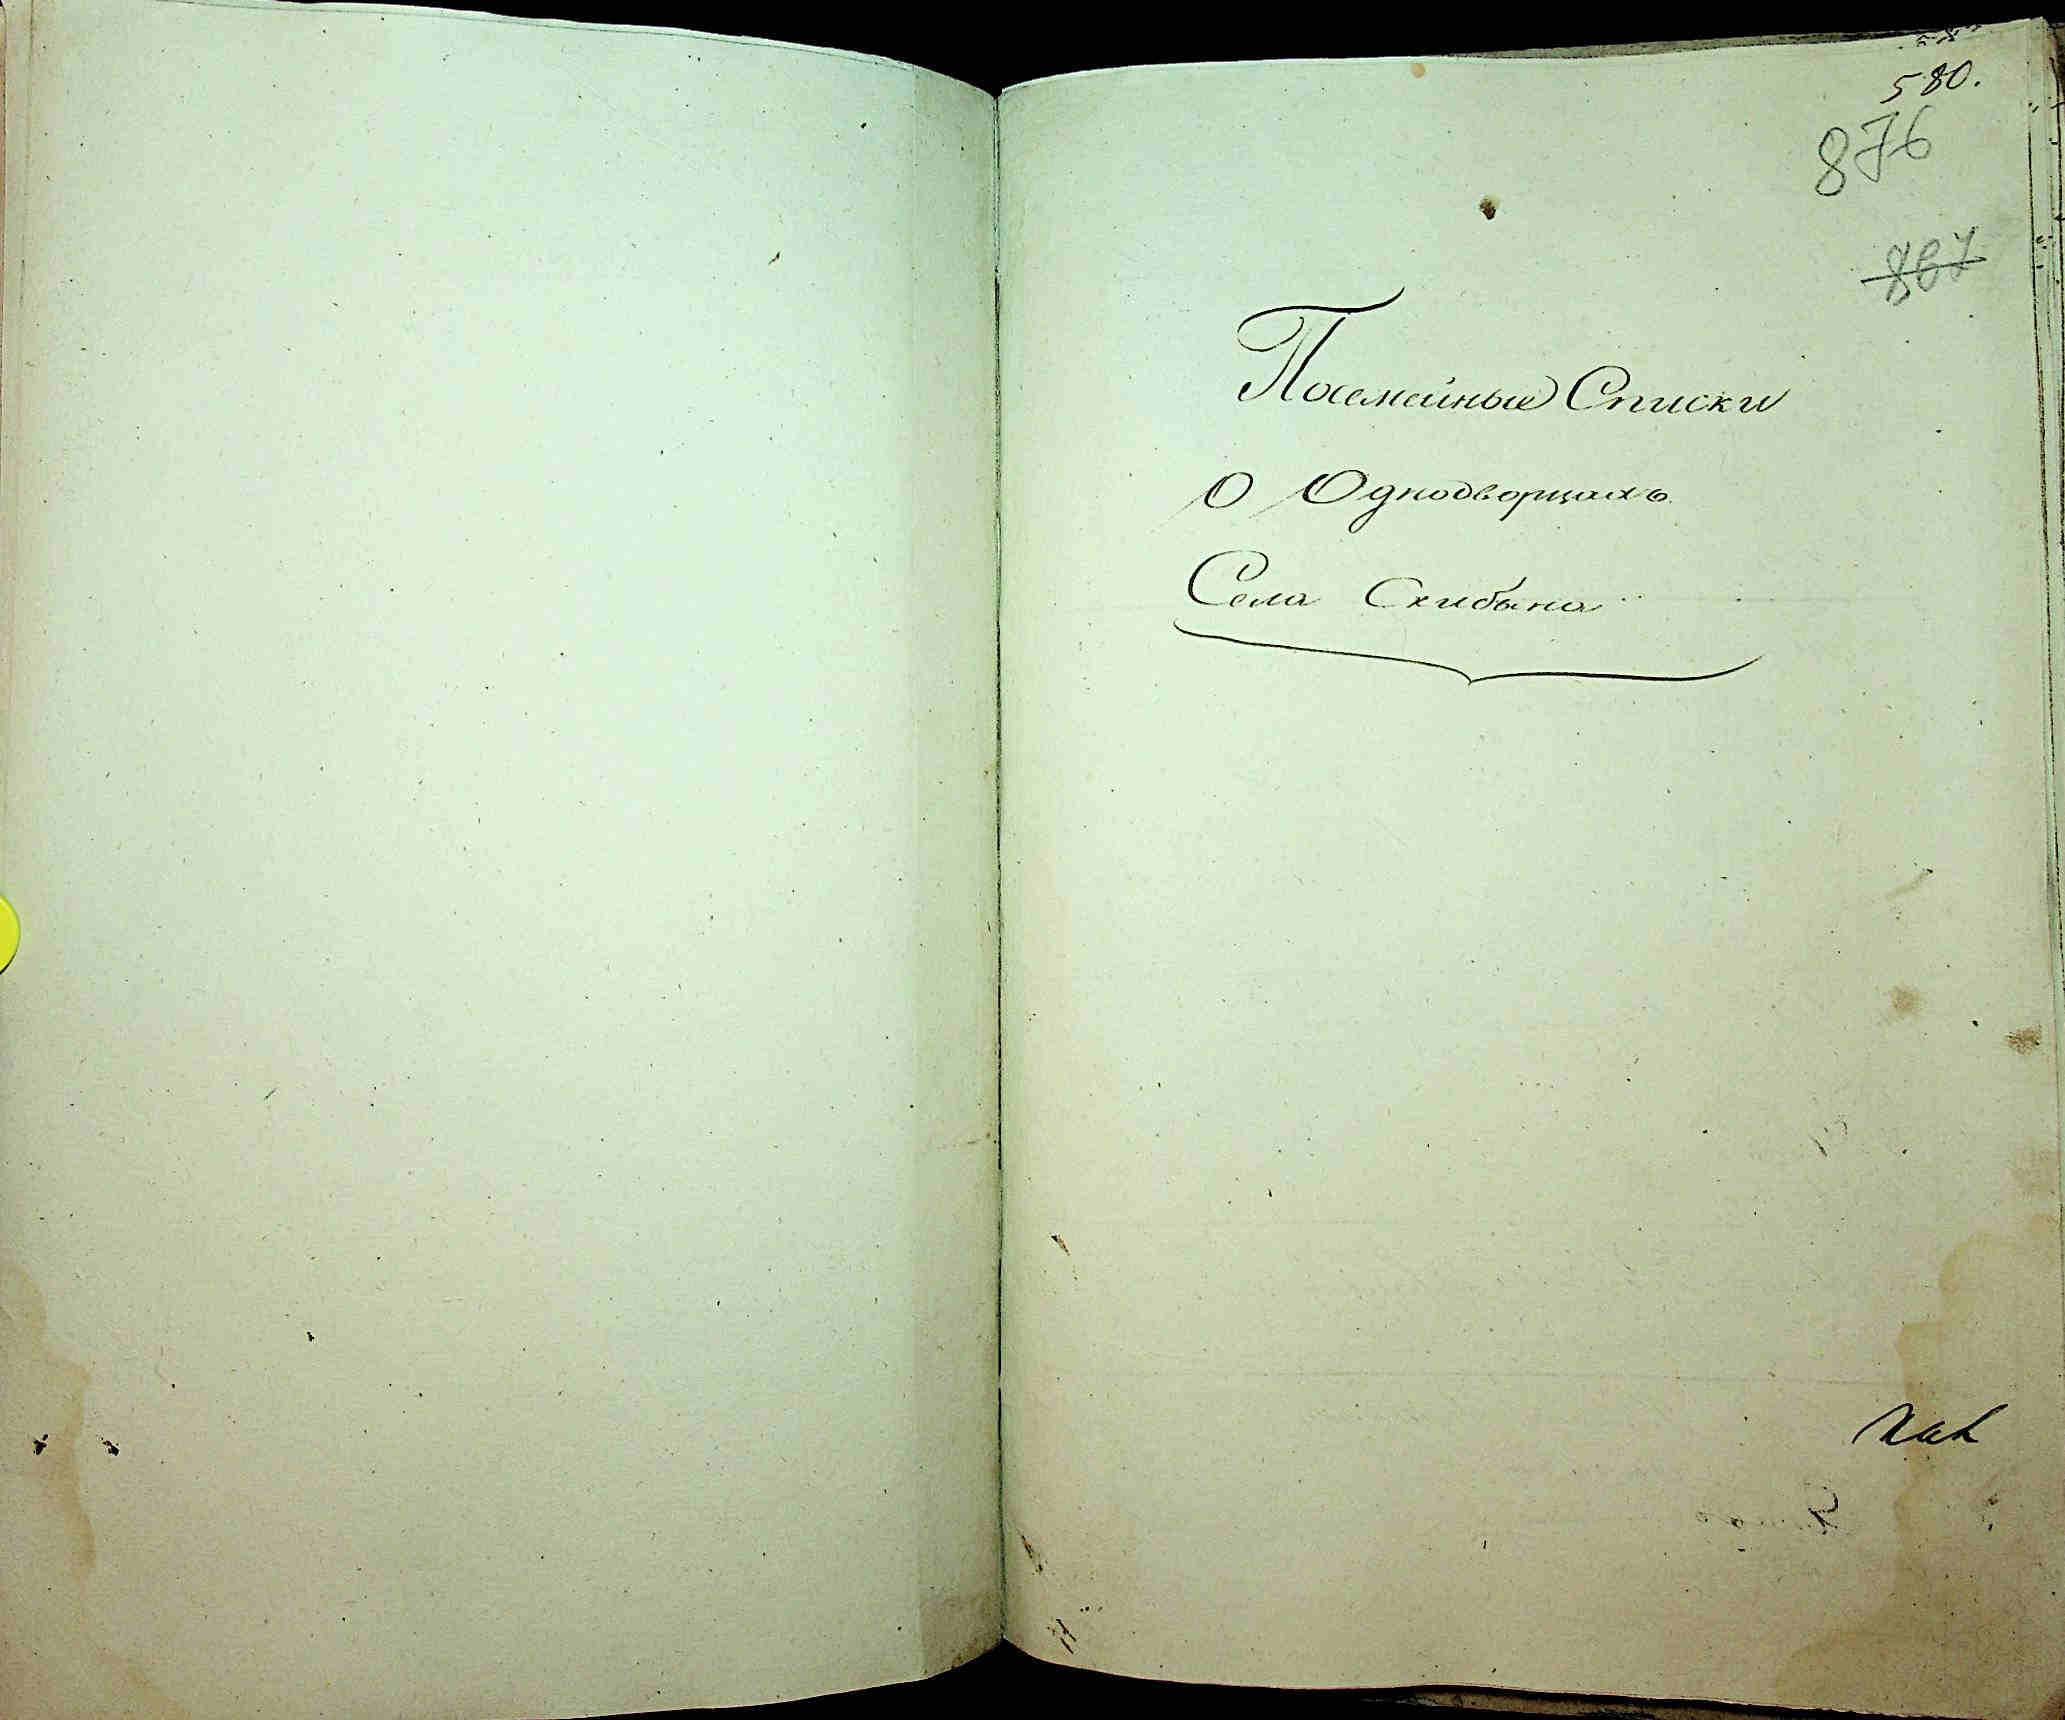 580.
876
867
Посемейные Списки
О Однодворцахъ
Села Скибына